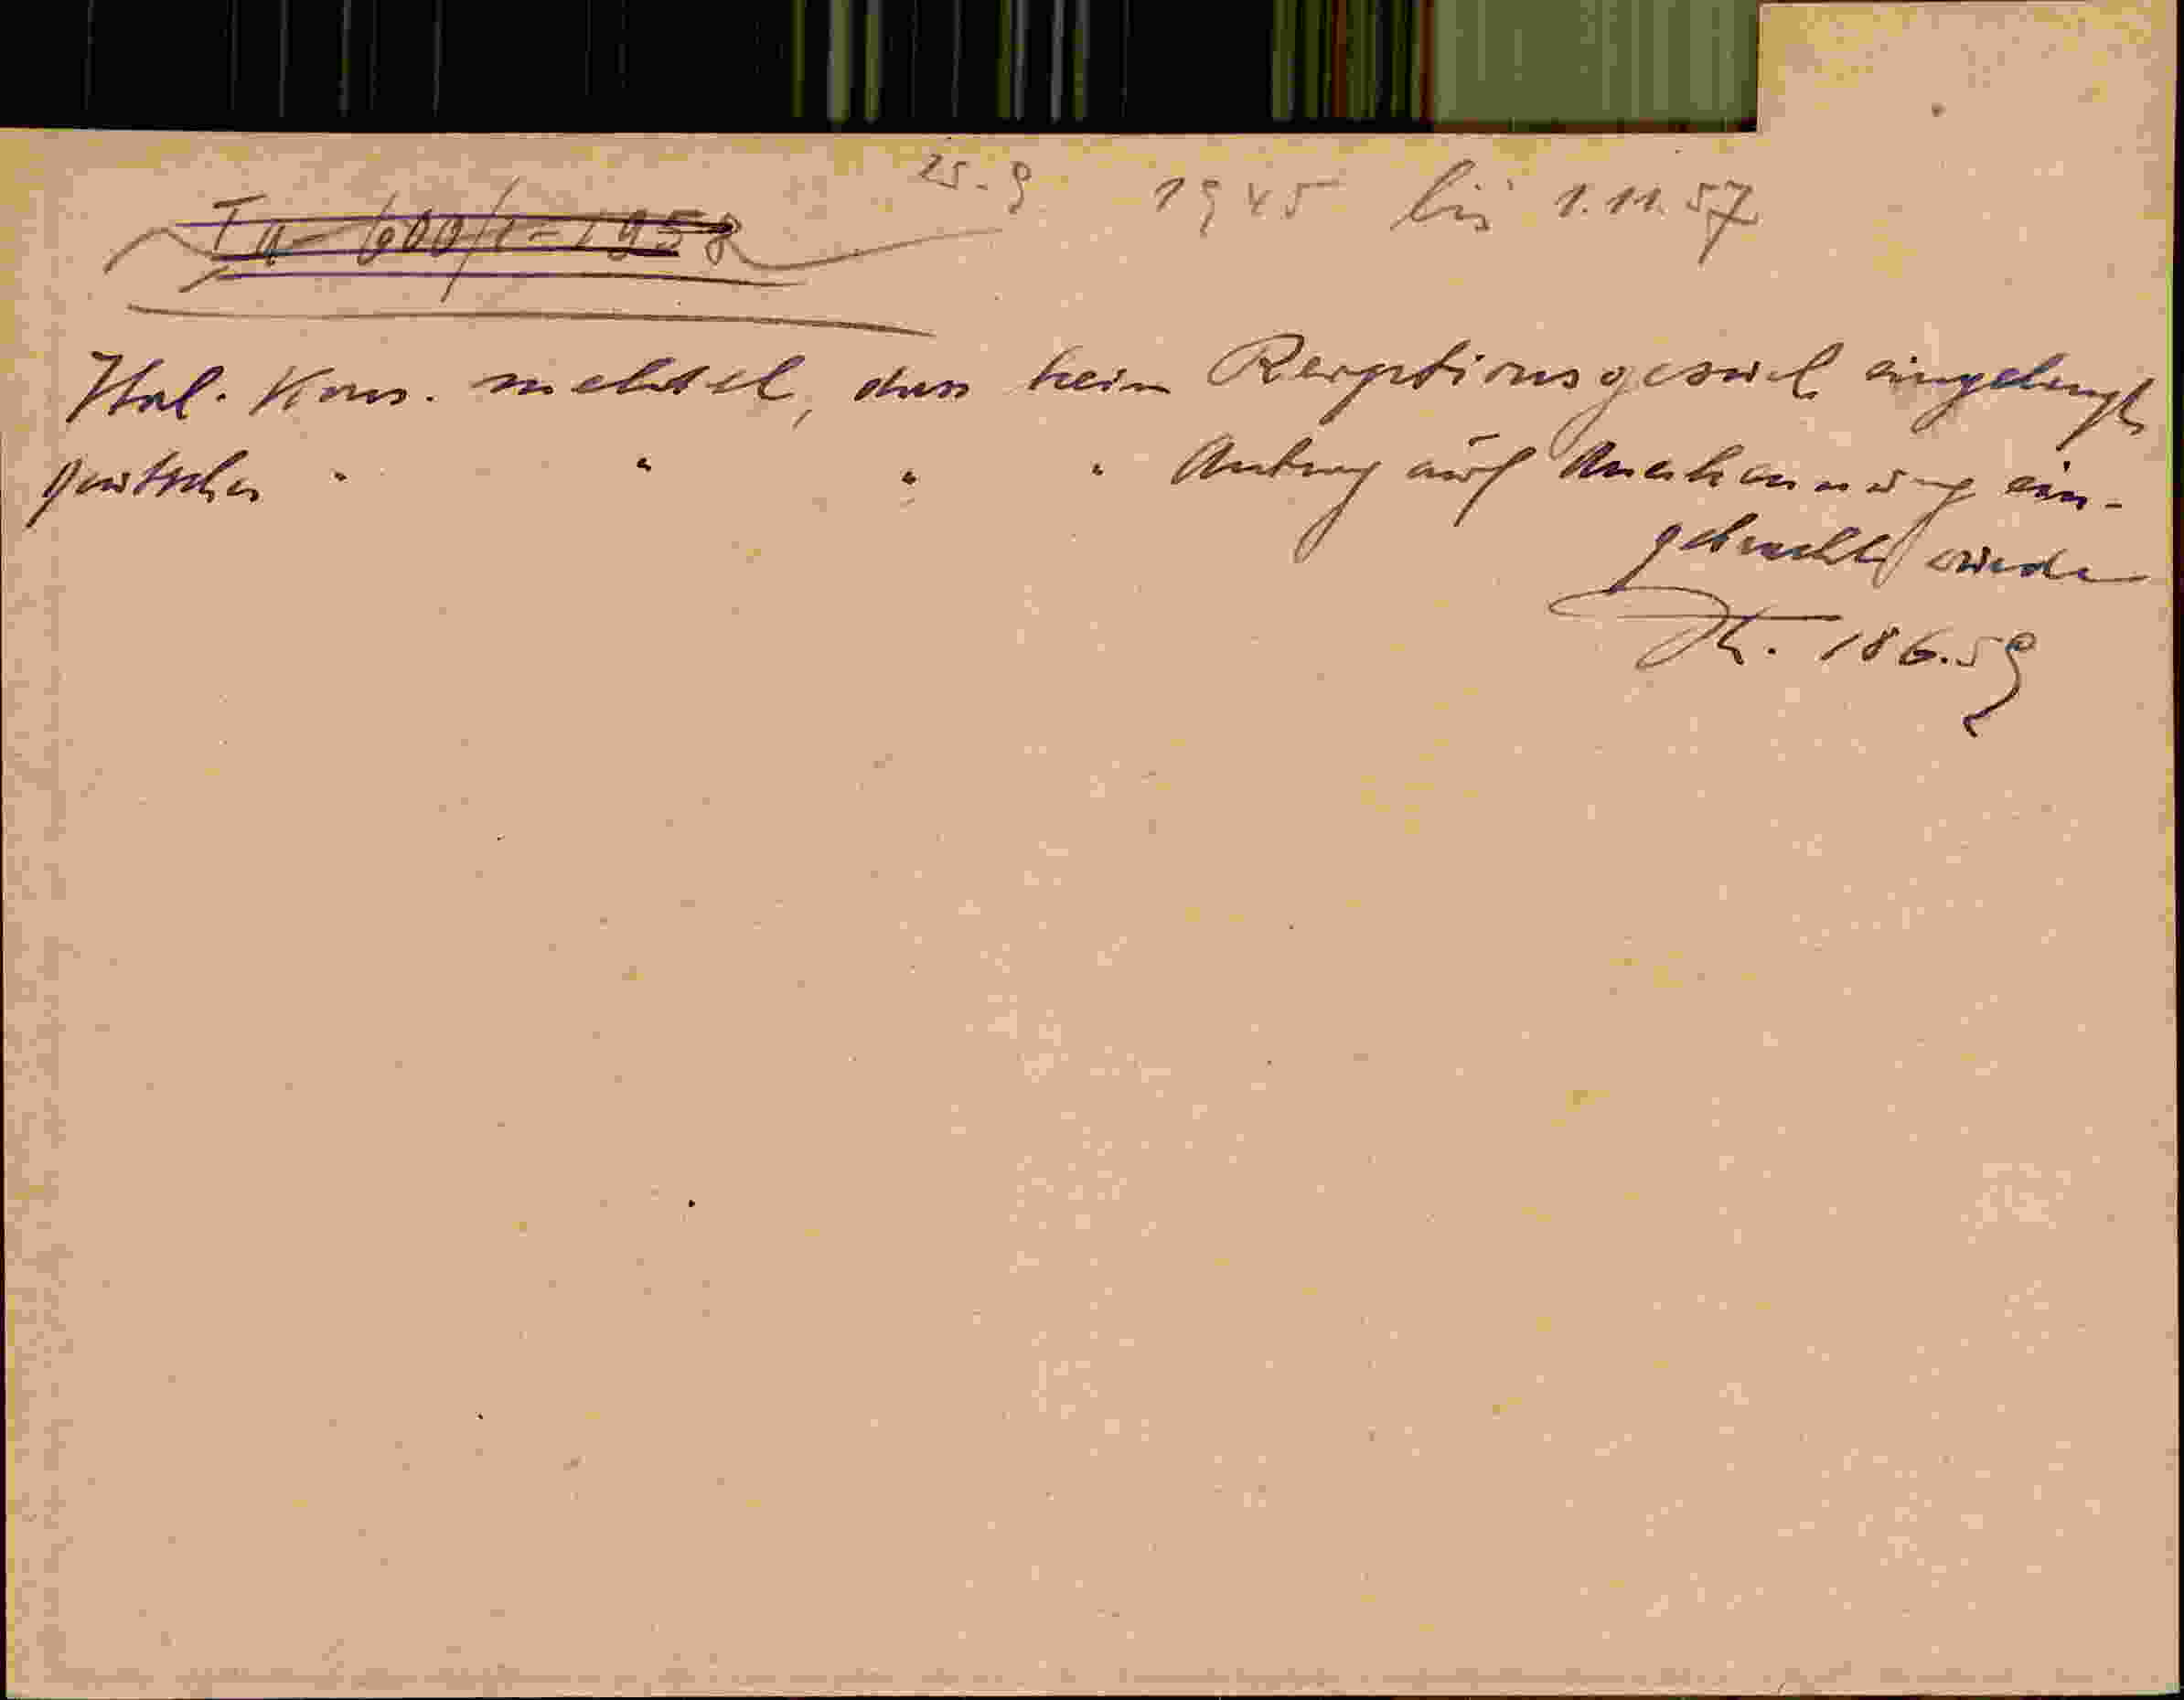 25.9 1945 bis 1.11.57
Ia-600/1-1958
Ital. Kons. meldet, dass kein Rezeptionsgesuch eingelangt
Deutsches " " " " Antrag auf Anerkennung ein-
gebracht wurde
18.6.59